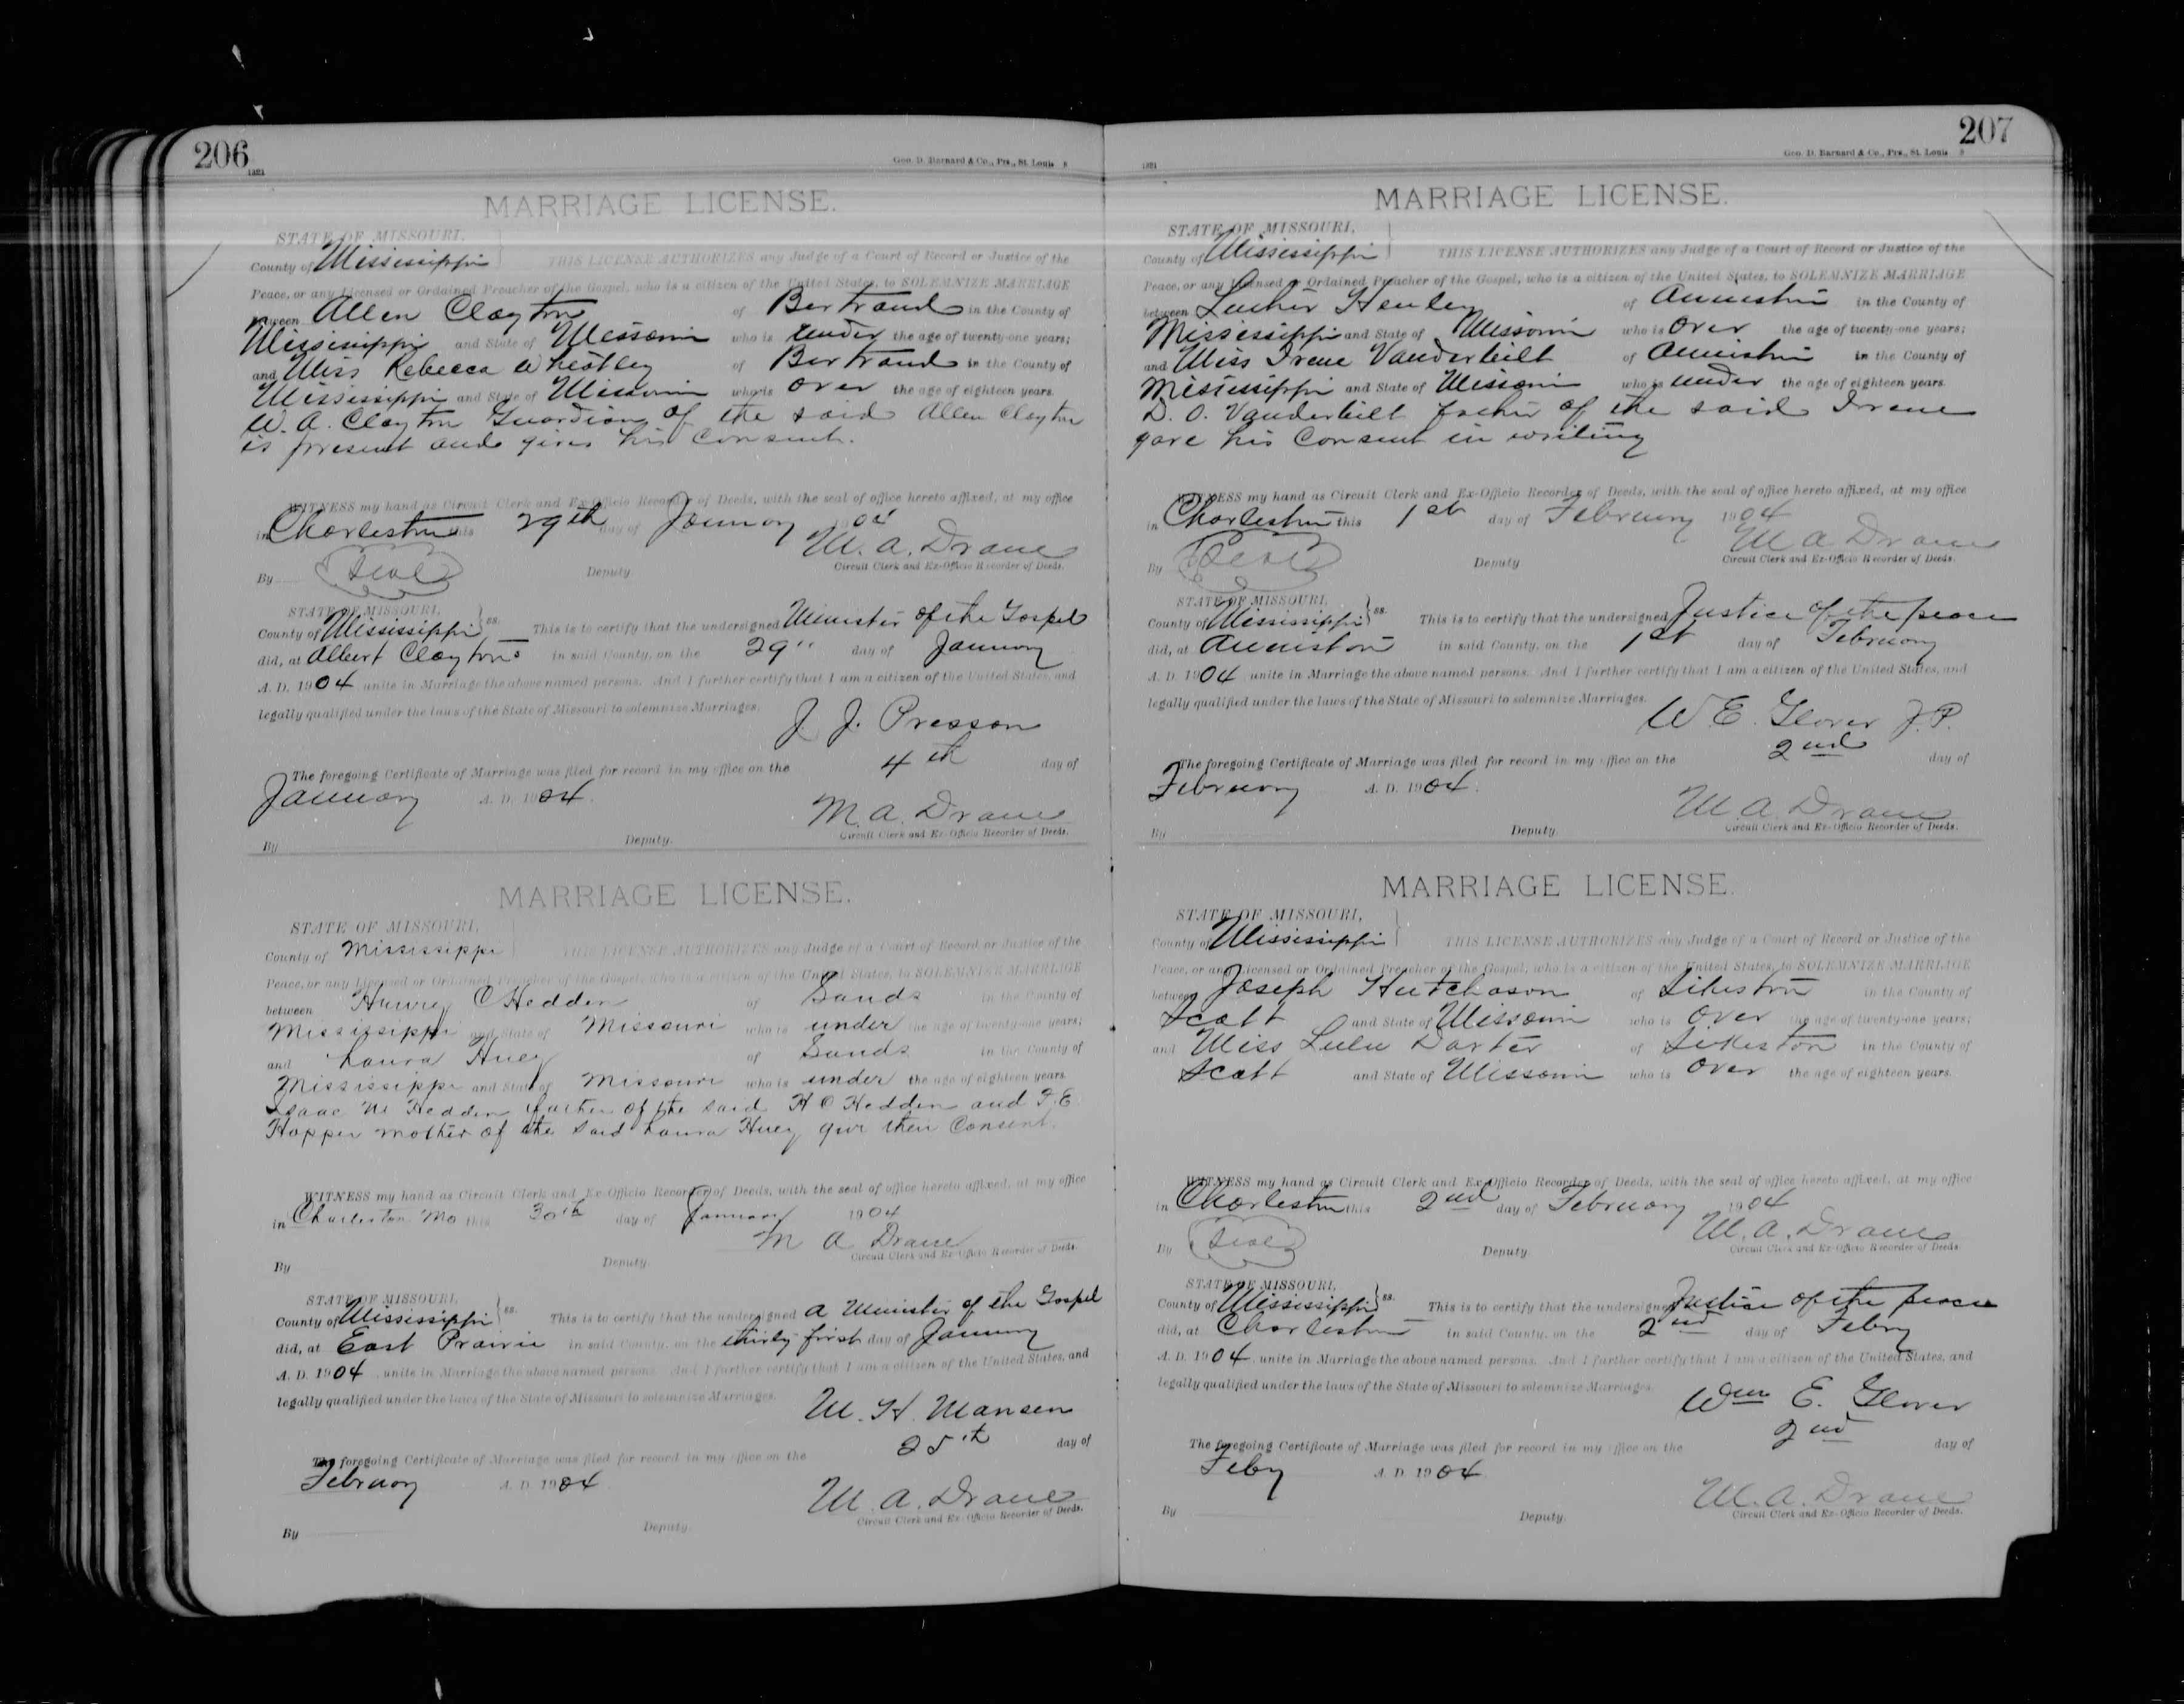 206
1321
Geo. D. Barnard & Co., Prs., St. Louis
MARRIAGE LICENSE.
STATE OF MISSOURI,
County of Mississippi THIS LICENSE AUTHORIZES any Judge of a Court of Record or Justice of the
Peace, or any Licensed or Ordained Preacher of the Gospel, who is a citizen of the United States, to SOLEMNIZE MARRIAGE
between Allen Clayton of Bertrand in the County of
Mississippi and State of Missouri who is under the age of twenty-one years;
and Miss Rebecca Wheatley of Bertrand in the County of
Mississippi and State of Missouri who is over the age of eighteen years.
W. A. Clayton Guardian of the said Allen Clayton
is present and gives his Consent.
WITNESS my hand as Circuit Clerk and Ex-Officio Recorder of Deeds, with the seal of office hereto affixed, at my office
in Charleston this 29th day of January 1904
M. A. Drane
By Seal Deputy. Circuit Clerk and Ex-Officio Recorder of Deeds.
STATE OF MISSOURI,
County of Mississippi ss. This is to certify that the undersigned Minister of the Gospel
did, at Albert Claytons in said County, on the 29" day of January
A. D. 1904 unite in Marriage the above named persons. And I further certify that I am a citizen of the United States, and
legally qualified under the laws of the State of Missouri to solemnize Marriages.
J. J. Presson
The foregoing Certificate of Marriage was filed for record in my office on the 4th day of
January A. D. 1904.
M. A. Drane
By Deputy. Circuit Clerk and Ex-Officio Recorder of Deeds.
MARRIAGE LICENSE.
STATE OF MISSOURI,
County of Mississippi THIS LICENSE AUTHORIZES any Judge of a Court of Record or Justice of the
Peace, or any Licensed or Ordained Preacher of the Gospel, who is a citizen of the United States, to SOLEMNIZE MARRIAGE
between Henry C Hedden of Sands in the County of
Mississippi and State of Missouri who is under the age of twenty-one years;
and Laura Huey of Sands in the County of
Mississippi and State of Missouri who is under the age of eighteen years.
Isaac M Hedden father of the said H C Hedden and F. E.
Hopper mother of the said Laura Huey give their Consent.
WITNESS my hand as Circuit Clerk and Ex-Officio Recorder of Deeds, with the seal of office hereto affixed, at my office
in Charleston Mo this 30th day of January 1904
M A Drane
By Deputy. Circuit Clerk and Ex-Officio Recorder of Deeds.
STATE OF MISSOURI,
County of Mississippi ss. This is to certify that the undersigned a Minister of the Gospel
did, at East Prairie in said County, on the thirty first day of January
A. D. 1904 unite in Marriage the above named persons. And I further certify that I am a citizen of the United States, and
legally qualified under the laws of the State of Missouri to solemnize Marriages.
M. H. Mansen
The foregoing Certificate of Marriage was filed for record in my office on the 25th day of
February A. D. 1904
M. A. Drane
By Deputy. Circuit Clerk and Ex-Officio Recorder of Deeds.
207
1321
Geo. D. Barnard & Co., Prs., St. Louis
MARRIAGE LICENSE.
STATE OF MISSOURI,
County of Mississippi THIS LICENSE AUTHORIZES any Judge of a Court of Record or Justice of the
Peace, or any Licensed or Ordained Preacher of the Gospel, who is a citizen of the United States, to SOLEMNIZE MARRIAGE
between Luther Henley of Anniston in the County of
Mississippi and State of Missouri who is over the age of twenty-one years;
and Miss Irene Vanderbilt of Anniston in the County of
Mississippi and State of Missouri who is under the age of eighteen years.
D. O. Vanderbilt father of the said Irene
gave his Consent in writing
WITNESS my hand as Circuit Clerk and Ex-Officio Recorder of Deeds, with the seal of office hereto affixed, at my office
in Charleston this 1st day of February 1904
M A Drane
By Seal Deputy. Circuit Clerk and Ex-Officio Recorder of Deeds.
STATE OF MISSOURI,
County of Mississippi ss. This is to certify that the undersigned Justice of the peace
did, at Anniston in said County, on the 1st day of February
A. D. 1904 unite in Marriage the above named persons. And I further certify that I am a citizen of the United States, and
legally qualified under the laws of the State of Missouri to solemnize Marriages.
W E. Glover J. P.
The foregoing Certificate of Marriage was filed for record in my office on the 2nd day of
February A. D. 1904.
M. A. Drane
By Deputy. Circuit Clerk and Ex-Officio Recorder of Deeds.
MARRIAGE LICENSE.
STATE OF MISSOURI,
County of Mississippi THIS LICENSE AUTHORIZES any Judge of a Court of Record or Justice of the
Peace, or any Licensed or Ordained Preacher of the Gospel, who is a citizen of the United States, to SOLEMNIZE MARRIAGE
between Joseph Hutchason of Sikeston in the County of
Scott and State of Missouri who is over the age of twenty-one years;
and Miss Lulu Darter of Sikeston in the County of
Scott and State of Missouri who is over the age of eighteen years.
WITNESS my hand as Circuit Clerk and Ex-Officio Recorder of Deeds, with the seal of office hereto affixed, at my office
in Charleston this 2nd day of February 1904
M. A. Drane
By Seal Deputy. Circuit Clerk and Ex-Officio Recorder of Deeds.
STATE OF MISSOURI,
County of Mississippi ss. This is to certify that the undersigned Justice of the peace
did, at Charleston in said County, on the 2nd day of Febry
A. D. 1904 unite in Marriage the above named persons. And I further certify that I am a citizen of the United States, and
legally qualified under the laws of the State of Missouri to solemnize Marriages.
Wm E. Glover
The foregoing Certificate of Marriage was filed for record in my office on the 2nd day of
Feby A. D. 1904
M. A. Drane
By Deputy. Circuit Clerk and Ex-Officio Recorder of Deeds.